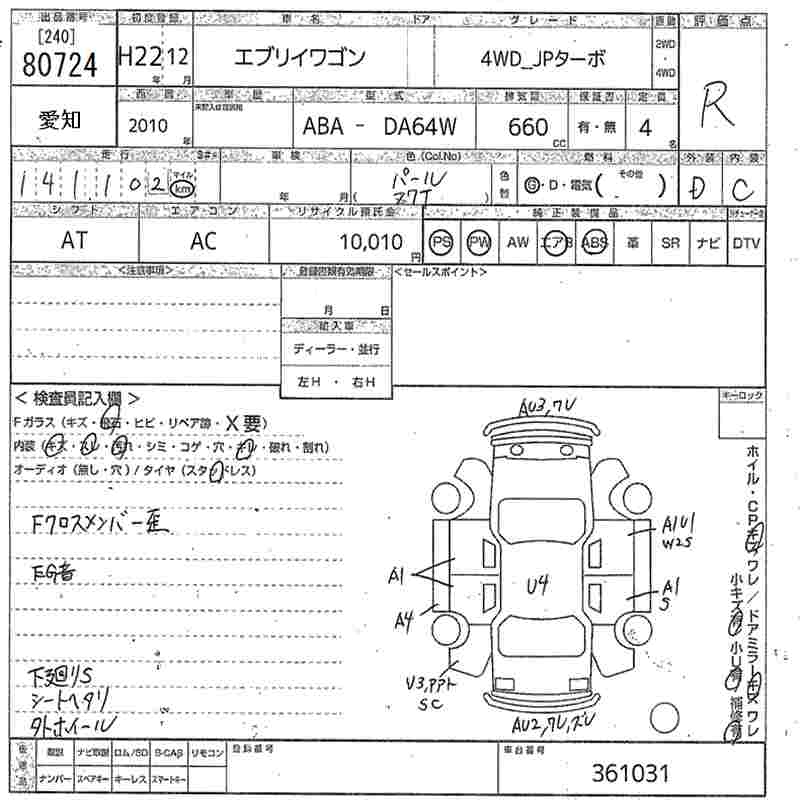 出品番号 初度登録 車名 ドア グレード 駆動 評価点
[240]
80724 H22 12 エブリイワゴン 4WD_JPターボ 2WD・4WD R
年 月
愛知 西暦 車歴 型式 排気量 保証書 定員
2010 年 ABA - DA64W 660 CC 有・無 4 名
走行 車検 色(Col.No) 燃料 外装 内装
141,102 マイル km 年 月 パール Z7T 色替 G・D・電気( その他 ) D C
シフト エアコン リサイクル預託金 純正装備品
AT AC 10,010 円 PS PW AW エアB ABS 革 SR ナビ DTV
<注意事項> 登録書類有効期限 <セールスポイント>
月 日
輸入車
ディーラー・並行
左H ・ 右H
< 検査員記入欄 > キーロック
Fガラス (キズ・飛石・ヒビ・リペア跡・X要)
内装 (キズ・スレ・汚れ・シミ・コゲ・穴・キレ・破れ・割れ)
オーディオ (無し・穴) / タイヤ (スタッドレス)
AU3,ワレ
Fクロスメンバー歪
A1U1
W2S
EG音
A1
U4
A1
S
A4
下廻りS
シートヘタリ
タトホイール
V3,アアト
SC
AU2,ワレ,ズレ
ホイル・CPキズワレ/ドアミラーキズワレ
小キズ 小U 補修
登録番号 車台番号
取説 ナビ取説 ロム/SD B-CAS リモコン
ナンバー スペアキー キーレス スマートキー
361031